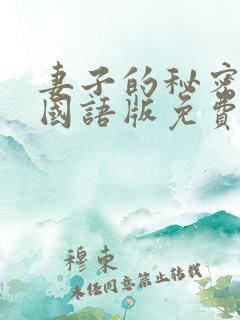 妻子的秘密
國語版免費
穆束
未经同意禁止转载